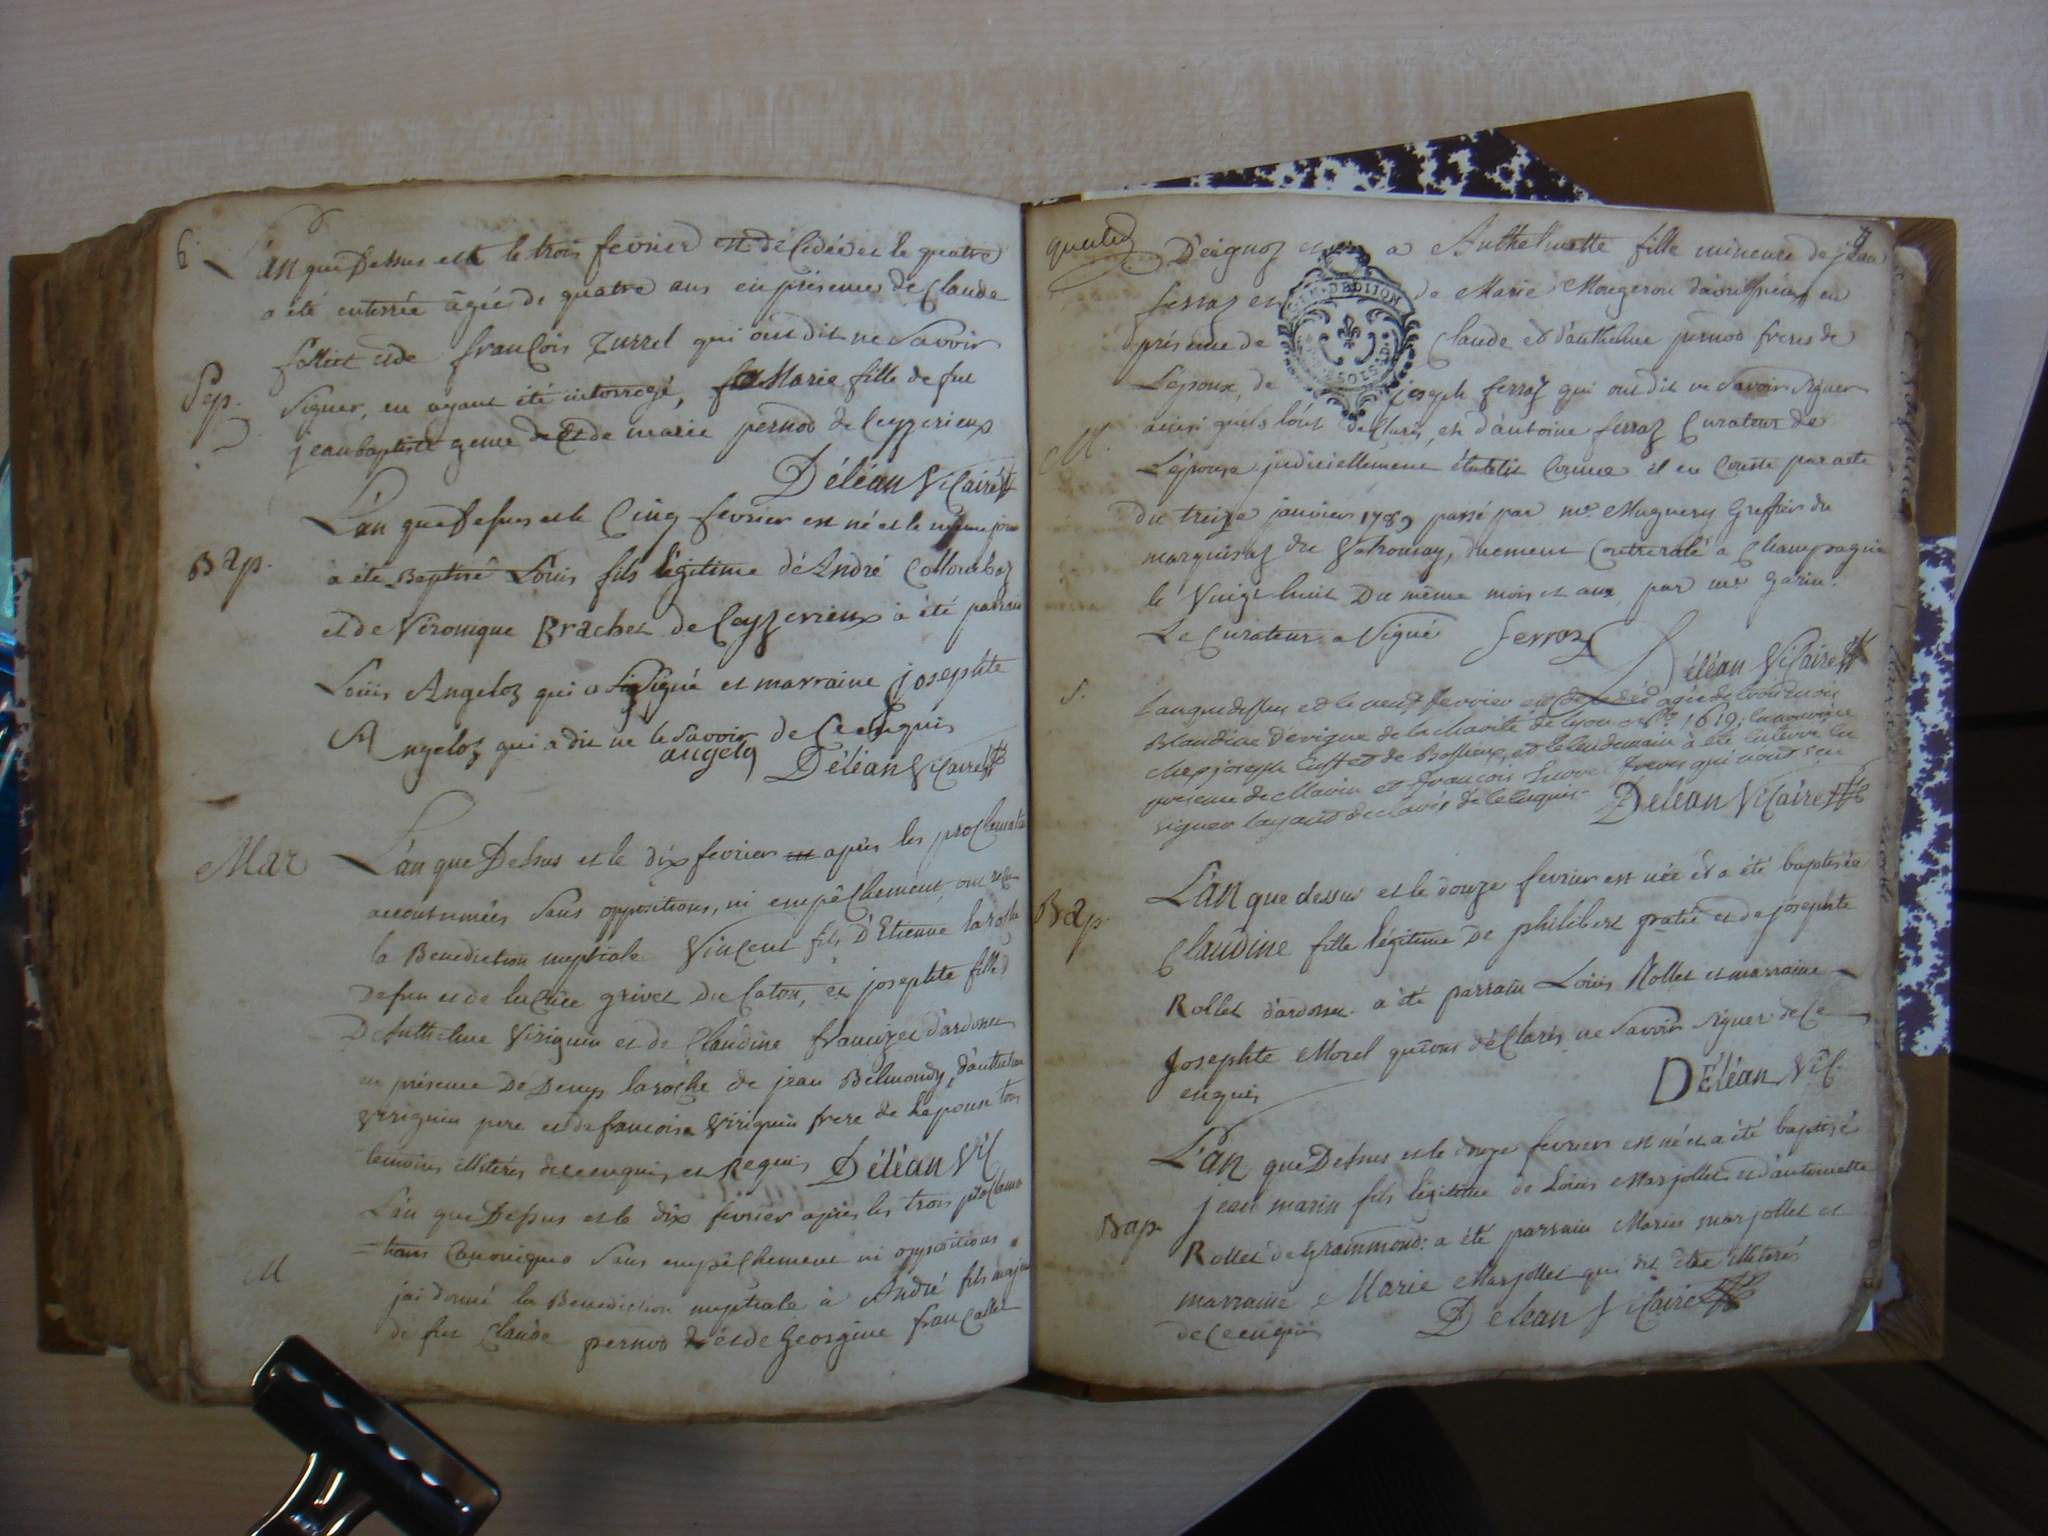 6
L'an que Dessus et le trois fevrier est décédée et le quatre
a été enterrée agée de quatre ans en présence de Claude
et de françois Turrel qui ont dit ne savoir
Sep.
signer, en ayant été interrogé, Marie fille de feu
jean baptiste et de marie pernod de Ceyzerieux
Déléan Vicaire
L'an que Dessus et le Cinq fevrier est né et le même jour
Bap.
a été Baptisé Louis fils légitime d'André Collombaz
et de Véronique Brachet de Ceyzerieux a été parrain
Louis Angeloz qui a signé et marraine josephte
Angeloz qui a dit ne le savoir de Ce enquis
angeloz Déléan Vicaire
Mar
L'an que Dessus et le dix fevrier après les proclamations
accoutumées sans oppositions, ni empêchement, ont reçu
la Benediction nuptiale Vincent fils d'Etienne laroche
defeu et de grivet du Caton, et josephte fille
D'Anthelme Viriguin et de Claudine d'ardosset
en présence De Denys laroche de jean Belmondy, d'anthelme
Viriguin pere et de francois Viriguin frere de l'epouse tous
temoins illiterés de ce enquis et Requis Déléan Vic
L'an que Dessus et le dix fevrier après les trois proclama
M
tions Canoniques sans empêchement ni oppositions
j'ai donné la Benediction nuptiale à André fils majeur
de feu Claude pernod et de Georgine francallet
D'eignoz a Anthelmette fille mineure de jean
GEN. D. DIJON
ferraz et de Marie Mougeron en
présence de Claude et d'anthelme pernod freres de
L'epoux, de joseph ferraz qui ont dit ne savoir signer
ainsi qu'ils l'ont declaré, et d'antoine ferraz Curateur de
M.
L'épouse judiciellement établit Comme il en Conste par acte
du treize janvier 1789 passé par me. Muguery Greffier du
marquisat du Valromay, duement Contrerolé a Champagne
le Vingt huit Du même mois et an, par me garin.
Le Curateur a signé ferraz
Déléan Vicaire
S.
L'an que dessus et le neuf fevrier est décédée agée de trois mois
Blandine de vigne de la charité de lyon 1619
chez joseph de et le lendemain à été enterrée en
presence de Marin et françois freres qui n'ont sçu
signer l'ayant declaré de Ce enquis. Déléan Vicaire
L'an que dessus et le douze fevrier est née et a été baptisée
Bap.
Claudine fille légitime De philibert gratié et de josephte
Rollet d'ardosset a été parrain Louis Rollet et marraine
Josephte Morel qui ont déclaré ne savoir signer de Ce
enquis
Déléan Vic.
L'an que Dessus et le douze fevrier est né et a été baptisé
jean marin fils légitime de Louis Marjollet et d'antoinette
Bap.
Rollet de Grammond: a été parrain Marin marjollet et
marraine Marie Marjollet qui dit être illiterés
de Ce enquis Déléan Vicaire